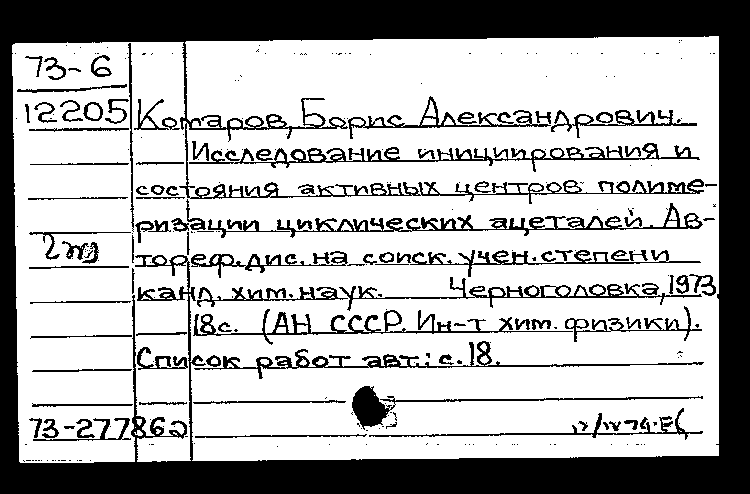 73-6
12205 Комаров, Борис Александрович.
Исследование инициирования и
состояния активных центров полиме-
ризации циклических ацеталей. Ав-
тореф. дис. на соиск. учен. степени
канд. хим. наук. Черноголовка, 1973.
18с. (АН СССР. Ин-т хим. физики).
Список работ авт.: с. 18.
73-27786